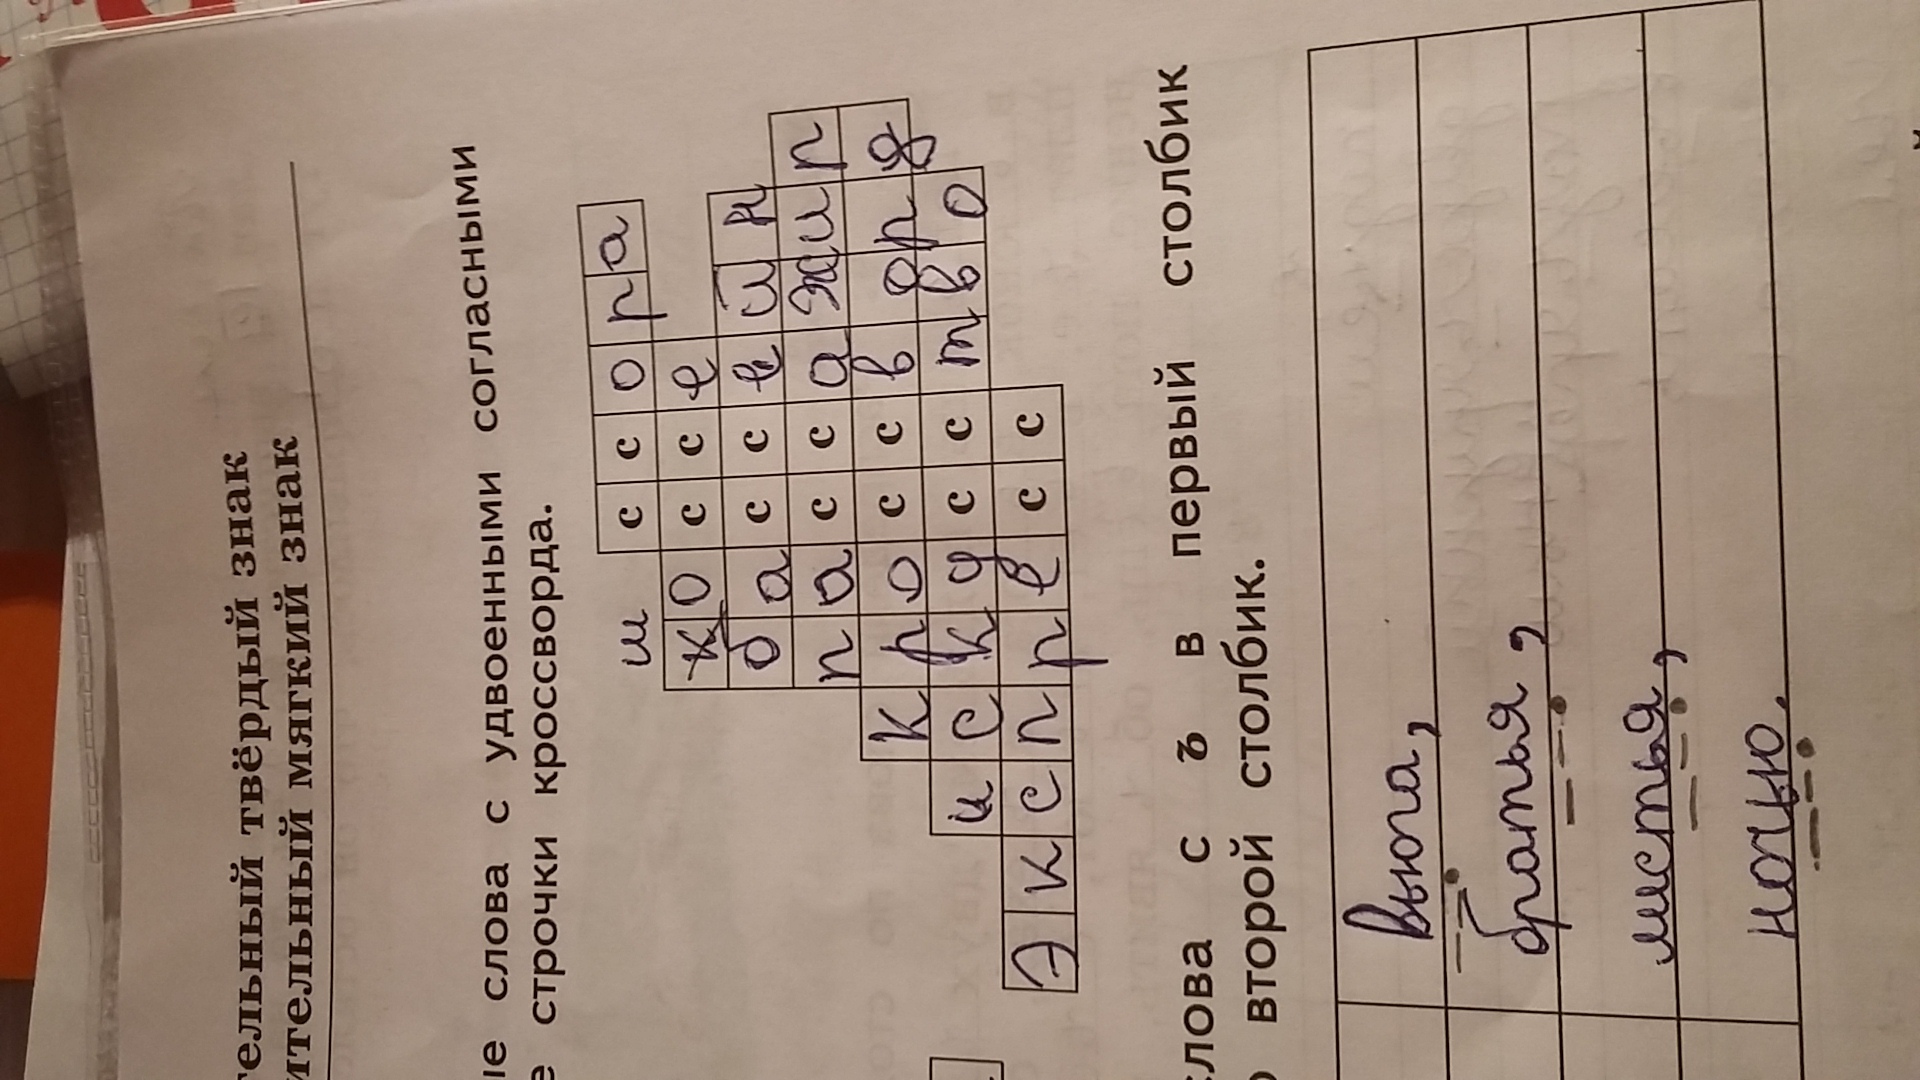 тельный твёрдый знак
ительный мягкий знак
ые слова с удвоенными согласными
е строчки кроссворда.
ссора
и
коссе
бассейн
пассажир
кроссворд
искусство
экспресс
слова с ъ в первый столбик
о второй столбик.
Вьюга,
братья,
листья,
ночью.